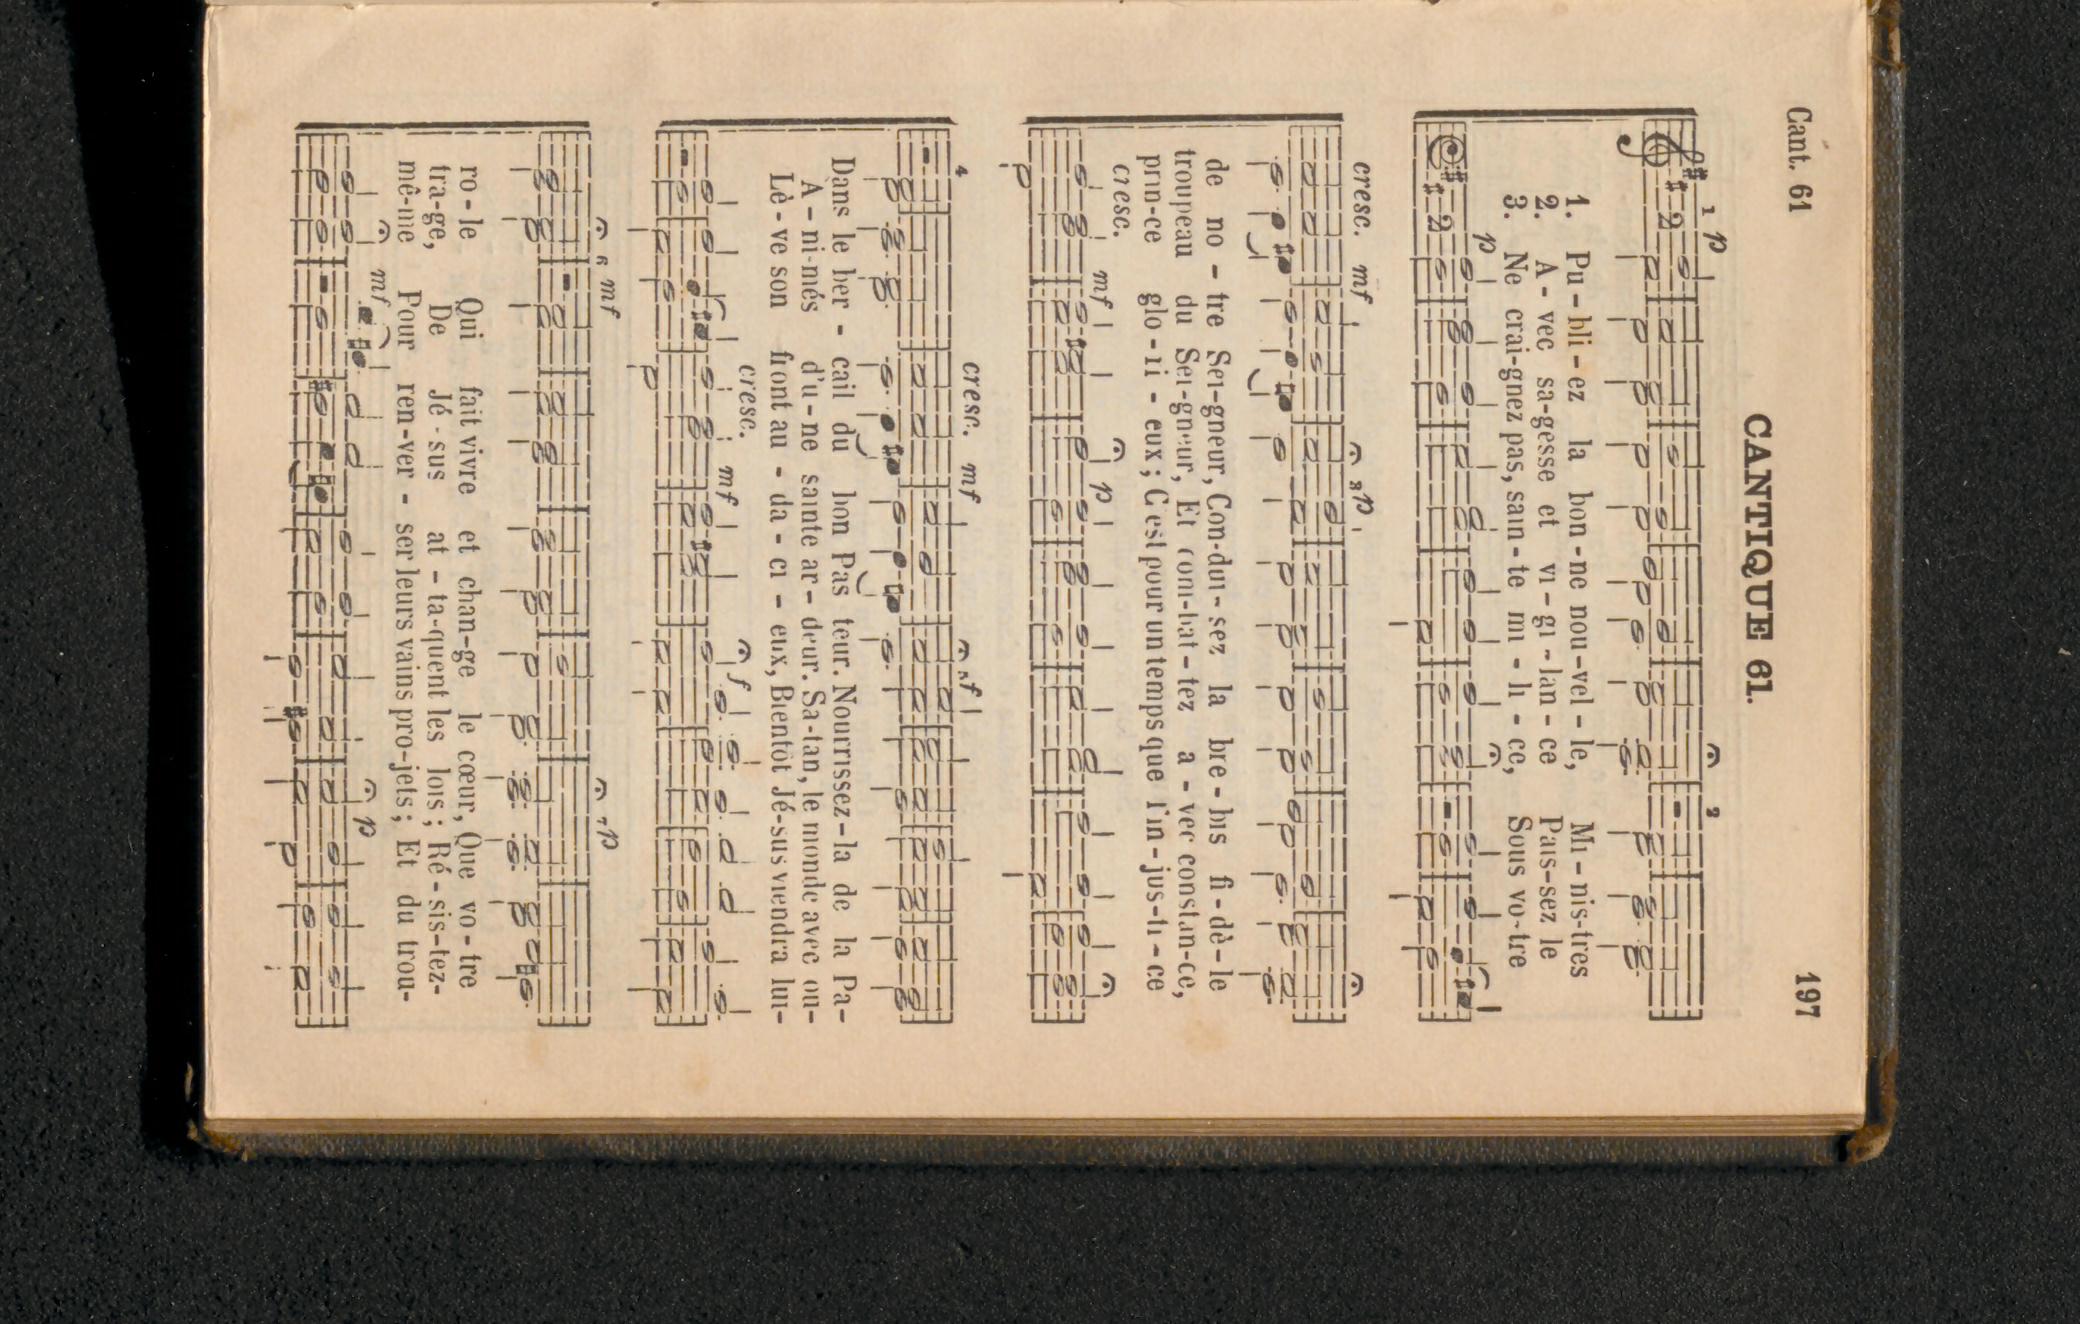 Cant. 61 197
CANTIQUE 61.
1 p 2
1. Pu-bli-ez la bon-ne nou-vel-le, Mi-nis-tres
2. A-vec sa-gesse et vi-gi-lan-ce Pais-sez le
3. Ne crai-gnez pas, sain-te mi-li-ce, Sous vo-tre
p
cresc. mf 3 p
de no-tre Sei-gneur, Con-dui-sez la bre-bis fi-dè-le
troupeau du Sei-gneur, Et com-bat-tez a-vec constan-ce,
prin-ce glo-ri-eux; C'est pour un temps que l'in-jus-ti-ce
cresc. mf p
4 cresc. mf 5 f
Dans le ber-cail du bon Pas teur. Nourrissez-la de la Pa-
A-ni-més d'u-ne sainte ar-deur. Sa-tan, le monde avec ou-
Lè-ve son front au-da-ci-eux, Bientôt Jé-sus viendra lui-
cresc. mf f
6 mf 7 p
ro-le Qui fait vivre et chan-ge le cœur, Que vo-tre
tra-ge, De Jé-sus at-ta-quent les lois; Ré-sis-tez-
mê-me Pour ren-ver-ser leurs vains pro-jets; Et du trou-
mf p